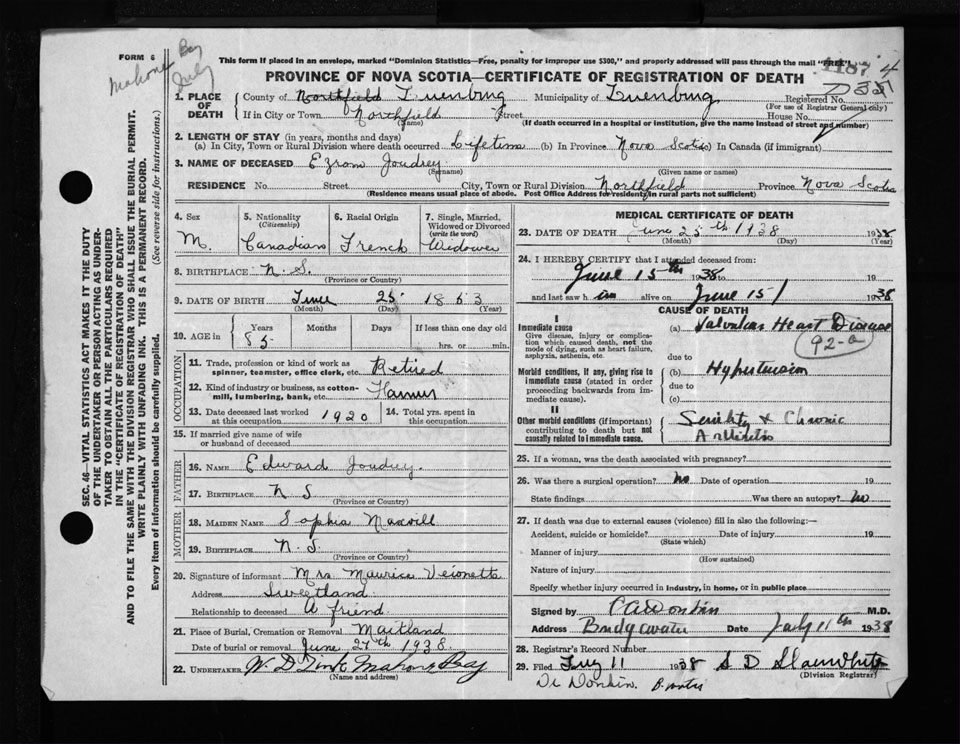 FORM 6
Mahone Bay
July
This form if placed in an envelope, marked "Dominion Statistics—Free, penalty for improper use $300," and properly addressed will pass through the mail "FREE".
PROVINCE OF NOVA SCOTIA—CERTIFICATE OF REGISTRATION OF DEATH
1. PLACE OF DEATH
County of Northfield Lunenburg Municipality of Lunenburg Registered No.
(For use of Registrar General only)
If in City or Town Northfield Street House No.
(Name) (If death occurred in a hospital or institution, give the name instead of street and number)
2. LENGTH OF STAY (in years, months and days)
(a) In City, Town or Rural Division where death occurred Lifetime (b) In Province Nova Scotia In Canada (if immigrant)
3. NAME OF DECEASED Ezrom Joudrey
(Surname) (Given name or names)
RESIDENCE No. Street City, Town or Rural Division Northfield Province Nova Scotia
(Residence means usual place of abode. Post Office Address for residents in rural parts not sufficient)
SEC. 46—VITAL STATISTICS ACT MAKES IT THE DUTY
OF THE UNDERTAKER OR PERSON ACTING AS UNDER-
TAKER TO OBTAIN ALL THE PARTICULARS REQUIRED
IN THE "CERTIFICATE OF REGISTRATION OF DEATH"
AND TO FILE THE SAME WITH THE DIVISION REGISTRAR WHO SHALL ISSUE THE BURIAL PERMIT.
WRITE PLAINLY WITH UNFADING INK. THIS IS A PERMANENT RECORD.
Every item of information should be carefully supplied. (See reverse side for instructions.)
4. Sex M.
5. Nationality (Citizenship) Canadian
6. Racial Origin French
7. Single, Married, Widowed or Divorced (write the word) Widower
8. BIRTHPLACE N. S.
(Province or Country)
9. DATE OF BIRTH June 25 1853
(Month) (Day) (Year)
10. AGE in Years Months Days If less than one day old
85 hrs. or min.
OCCUPATION
11. Trade, profession or kind of work as spinner, teamster, office clerk, etc. Retired
12. Kind of industry or business, as cotton-mill, lumbering, bank, etc. Farmer
13. Date deceased last worked at this occupation 1920 14. Total yrs. spent in this occupation
15. If married give name of wife or husband of deceased
FATHER
16. NAME Edward Joudrey.
17. BIRTHPLACE N S
(Province or Country)
MOTHER
18. MAIDEN NAME Sophia
19. BIRTHPLACE N. S.
(Province or Country)
20. Signature of informant Mrs Maurice Veionotte
Address Sweetland
Relationship to deceased A friend
21. Place of Burial, Cremation or Removal Maitland
Date of burial or removal June 27th 1938.
22. UNDERTAKER W. D Zink Mahone Bay
(Name and address)
MEDICAL CERTIFICATE OF DEATH
23. DATE OF DEATH June 25th 1938 1938
(Month) (Day) (Year)
24. I HEREBY CERTIFY that I attended deceased from:
June 15th 1938 to 19
and last saw h im alive on June 15 1938
CAUSE OF DEATH
I
Immediate cause
Give disease, injury or complication which caused death, not the mode of dying, such as heart failure, asphyxia, asthenia, etc.
(a) Valvular Heart Disease
92-a
due to
Morbid conditions, if any, giving rise to immediate cause (stated in order proceeding backwards from immediate cause).
(b) Hypertension
due to
(c)
II
Other morbid conditions (if important) contributing to death but not causally related to immediate cause.
Senility & Chronic
Arthritis
25. If a woman, was the death associated with pregnancy?
26. Was there a surgical operation? no Date of operation 19
State findings Was there an autopsy? no
27. If death was due to external causes (violence) fill in also the following:—
Accident, suicide or homicide? Date of injury 19
(State which)
Manner of injury
(How sustained)
Nature of injury
Specify whether injury occurred in industry, in home, or in public place
Signed by CA Donkin M.D.
Address Bridgewater Date July 11th 1938
28. Registrar's Record Number
29. Filed July 11 1938 S D Slauwhite
(Division Registrar)
Dr Donkin.